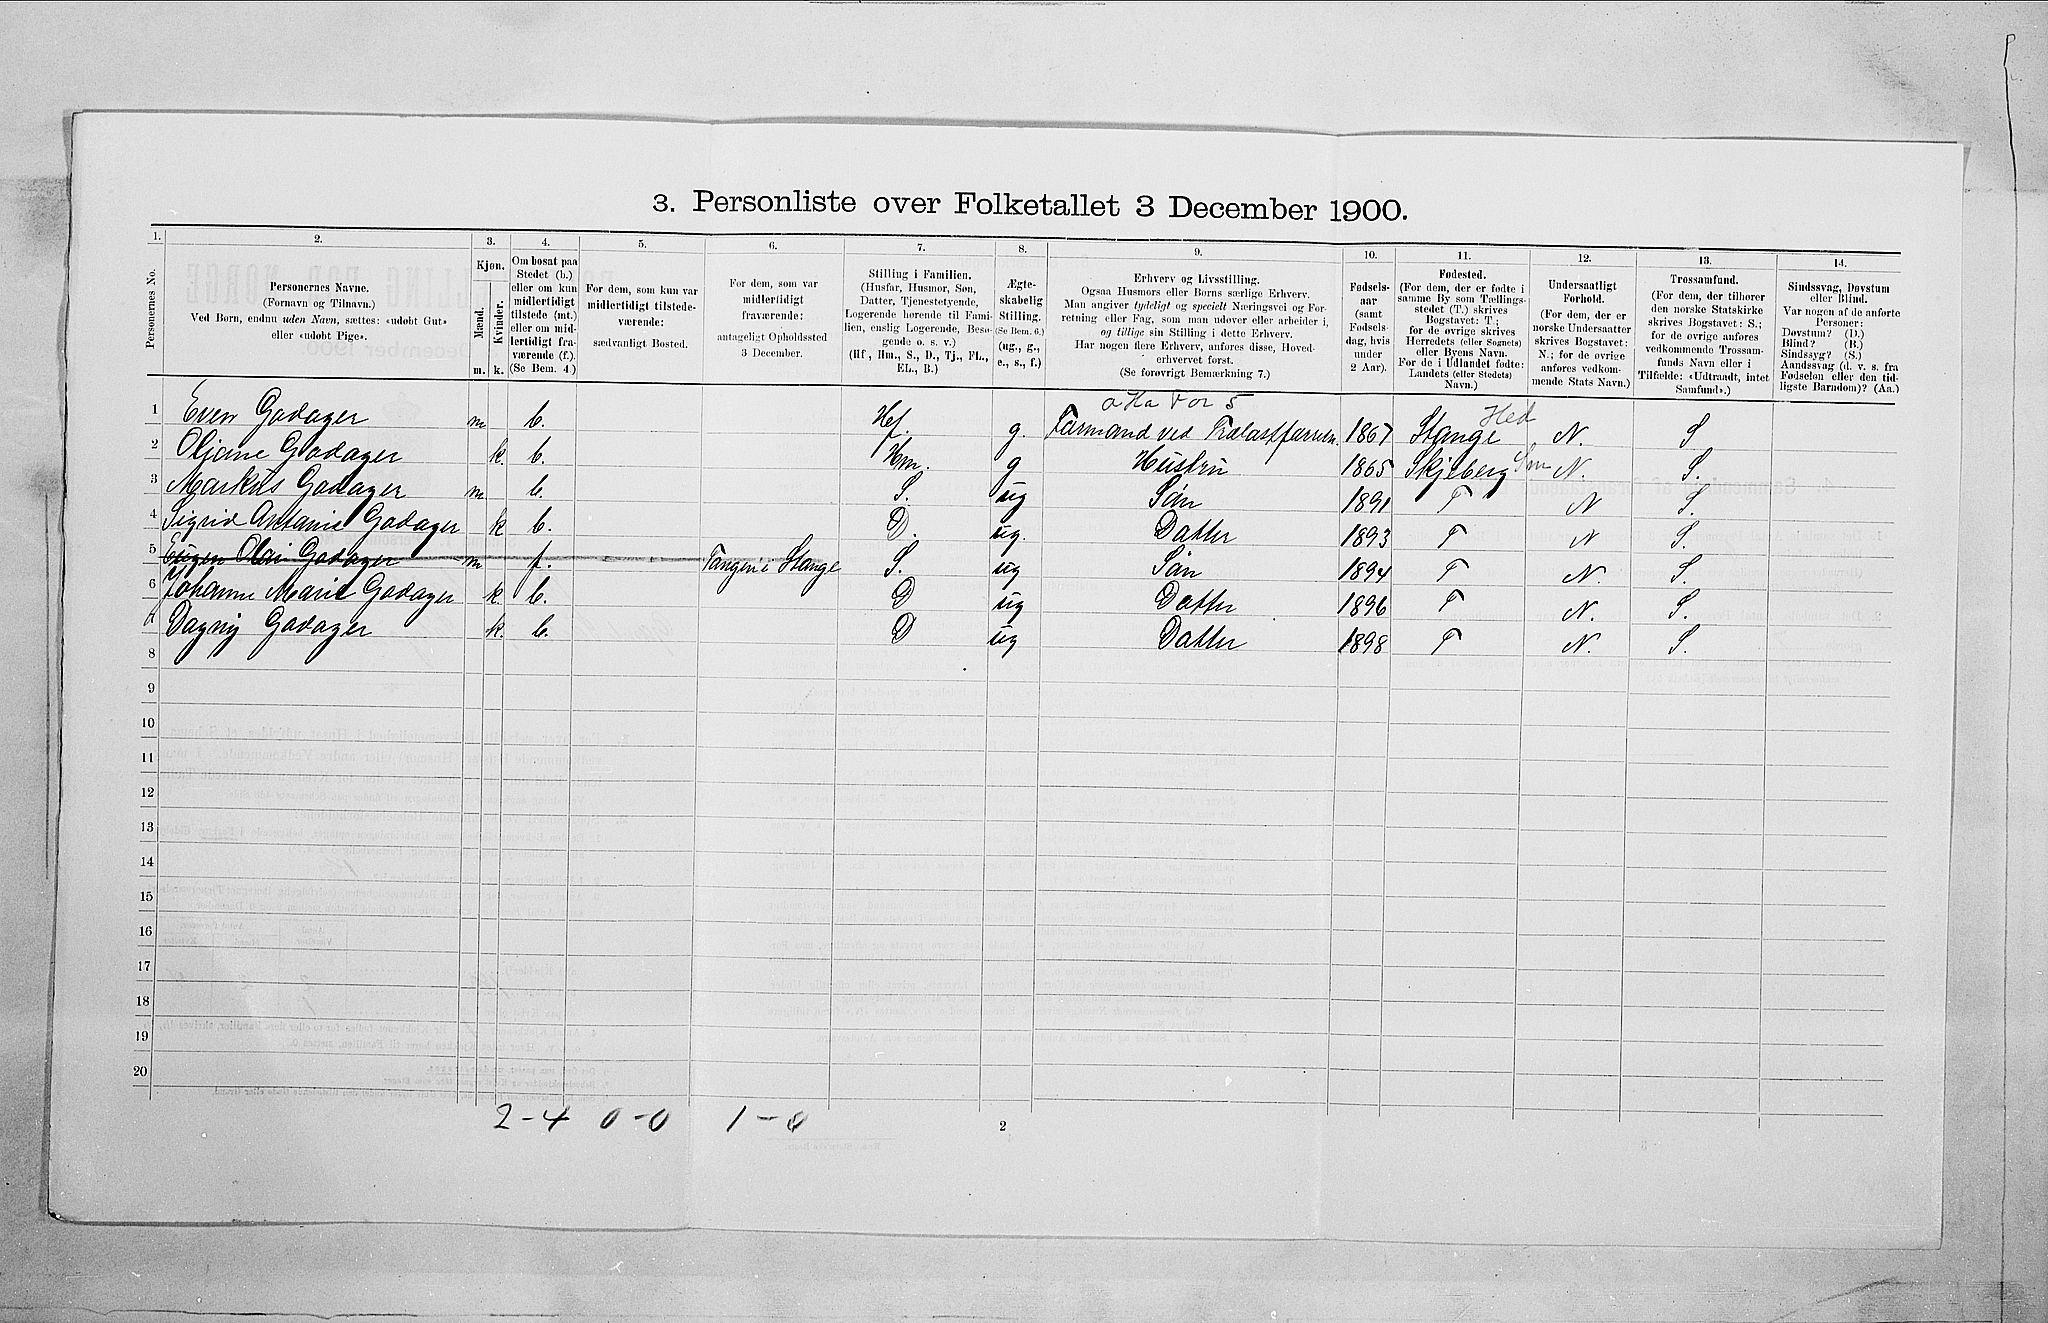 3. Personliste over Folketallet 3 December 1900.
1. 2. 3. 4. 5. 6. 7. 8. 9. 10. 11. 12. 13. 14.
Personernes No.
Personernes Navne.
(Fornavn og Tilnavn.)
Ved Børn, endnu uden Navn, sættes: «udøbt Gut»
eller «udøbt Pige».
Kjøn.
Mænd.
Kvinder.
m. k.
Om bosat paa
Stedet (b.)
eller om kun
midlertidigt
tilstede (mt.)
eller om mid-
lertidigt fra-
værende (f.).
(Se Bem. 4.)
For dem, som kun var
midlertidigt tilstede-
værende:
sædvanligt Bosted.
For dem, som var
midlertidigt
fraværende:
antageligt Opholdssted
3 December.
Stilling i Familien.
(Husfar, Husmor, Søn,
Datter, Tjenestetyende,
Logerende hørende til Fami-
lien, enslig Logerende, Besø-
gende o. s. v.)
(Hf, Hm., S., D., Tj., FL.,
EL., B.)
Ægte-
skabelig
Stilling.
(Se Bem. 6.)
(ug., g.,
e., s., f.)
Erhverv og Livsstilling.
Ogsaa Husmors eller Børns særlige Erhverv.
Man angiver tydeligt og specielt Næringsvei og For-
retning eller Fag, som man udøver eller arbeider i,
og tillige sin Stilling i dette Erhverv.
Har nogen flere Erhverv, anføres disse, Hoved-
erhvervet først.
(Se forøvrigt Bemærkning 7.)
Fødsels-
aar
(samt
Fødsels-
dag, hvis
under
2 Aar).
Fødested.
(For dem, der er fødte i
samme By som Tællings-
stedet (T.) skrives
Bogstavet: T.;
for de øvrige skrives
Herredets (eller Sognets)
eller Byens Navn.
For de i Udlandet fødte:
Landets (eller Stedets)
Navn.)
Undersaatligt
Forhold.
(For dem, der er
norske Undersaatter
skrives Bogstavet:
N.; for de øvrige
anføres vedkom-
mende Stats Navn.)
Trossamfund.
(For dem, der tilhører
den norske Statskirke
skrives Bogstavet: S.;
for de øvrige anføres
vedkommende Trossam-
funds Navn eller i
Tilfælde: «Udtraadt, intet
Samfund».)
Sindssvag, Døvstum
eller Blind.
Var nogen af de anførte
Personer:
Døvstum? (D.)
Blind? (B.)
Sindssyg? (S.)
Aandssvag (d. v. s. fra
Fødselen eller den tid-
ligste Barndom)? (Aa.)
1 Even Godager m b. Hf. g. Formand ved Trælastforretn. 1867 Stange Hed N. S
2 Oljane Godager k. b. Hm. g Hustru 1865 Skjeberg Sm N. S.
3 Markus Godager m b. S. ug Søn 1891 T N S.
4 Sigrid Antonie Godager k b. D. ug. Datter 1893 T N S.
5 Eugen Olai Godager m f. Tangen i Stange S. ug Søn 1894 T N. S.
6 Johanne Marie Godager k. b. D ug Datter 1896 T N. S.
7 Dagny Godager k. b. D ug Datter 1898 T N. S.
8
9
10
11
12
13
14
15
16
17
18
19
20
2-4 0-0 1-0
2